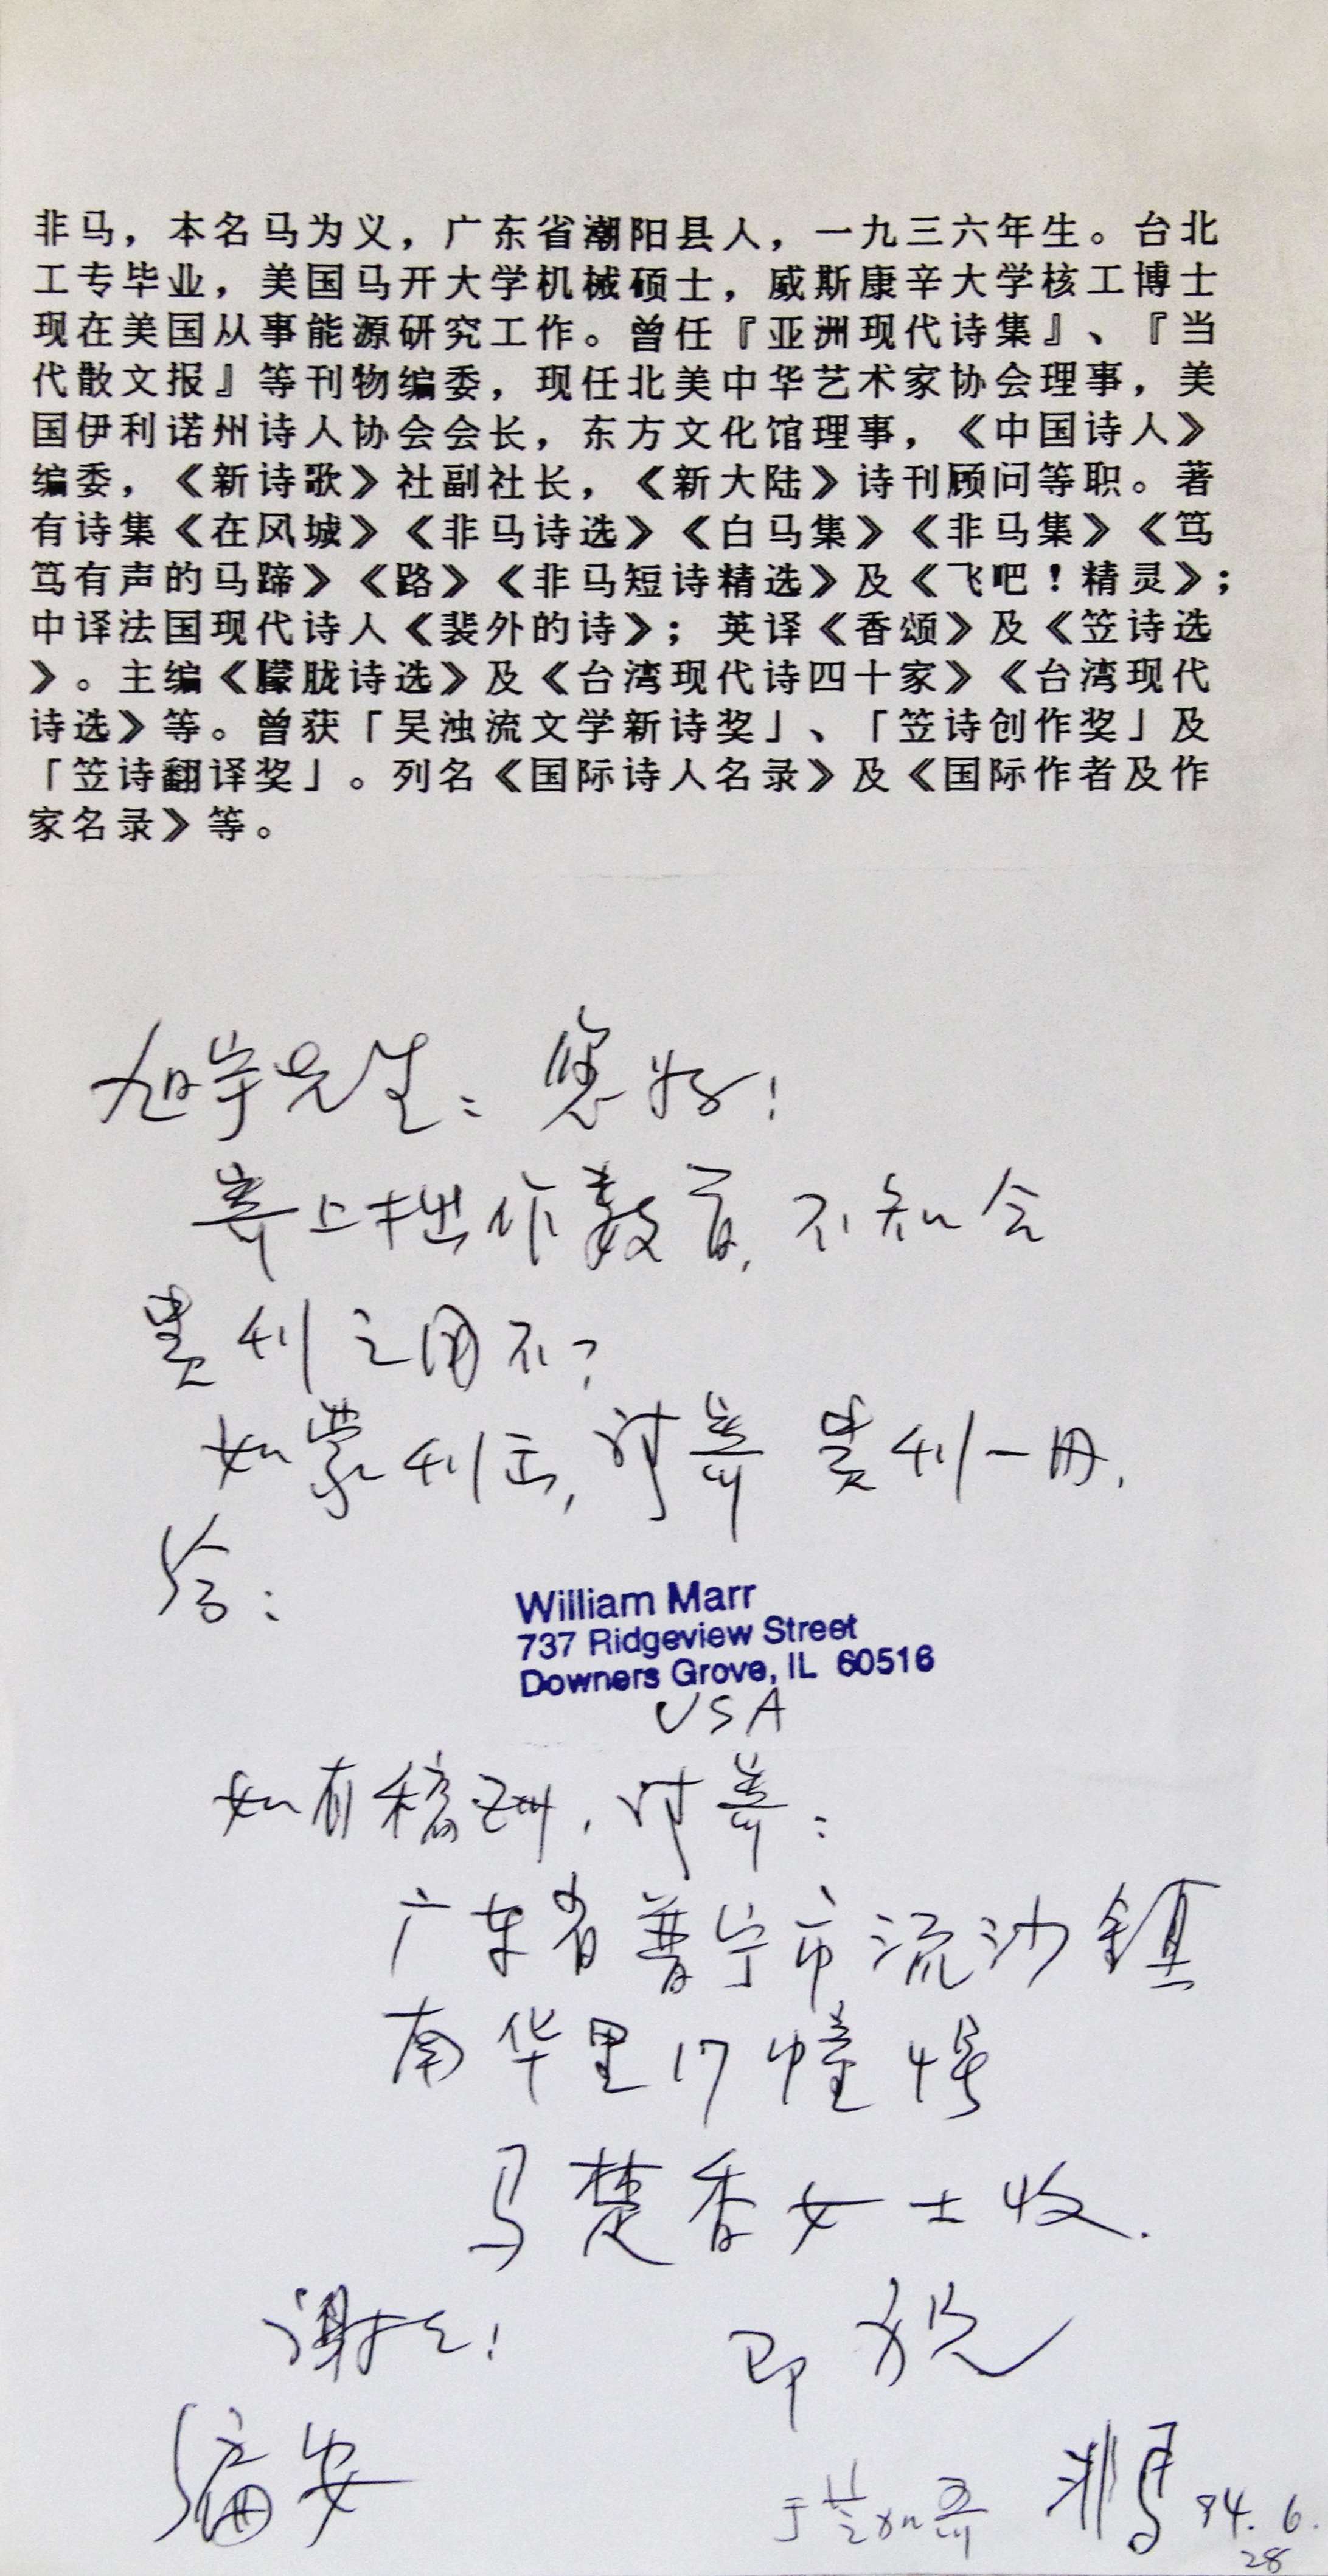 非马，本名马为义，广东省潮阳县人，一九三六年生。台北
工专毕业，美国马开大学机械硕士，威斯康辛大学核工博士
现在美国从事能源研究工作。曾任『亚洲现代诗集』、『当
代散文报』等刊物编委，现任北美中华艺术家协会理事，美
国伊利诺州诗人协会会长，东方文化馆理事，《中国诗人》
编委，《新诗歌》社副社长，《新大陆》诗刊顾问等职。著
有诗集《在风城》《非马诗选》《白马集》《非马集》《笃
笃有声的马蹄》《路》《非马短诗精选》及《飞吧！精灵》；
中译法国现代诗人《裴外的诗》；英译《香颂》及《笠诗选
》。主编《朦胧诗选》及《台湾现代诗四十家》《台湾现代
诗选》等。曾获「吴浊流文学新诗奖」、「笠诗创作奖」及
「笠诗翻译奖」。列名《国际诗人名录》及《国际作者及作
家名录》等。
旭宇先生：您好！
寄上拙作数首，不知合
贵刊之用不？
如蒙刊出，请寄贵刊一册，
给：
William Marr
737 Ridgeview Street
Downers Grove, IL 60516
USA
如有稿酬，请寄：
广东省普宁市流沙镇
南华里17幢4号
马楚香女士收.
谢谢！ 即祝
编安
非马 94.6.
28
于芝加哥